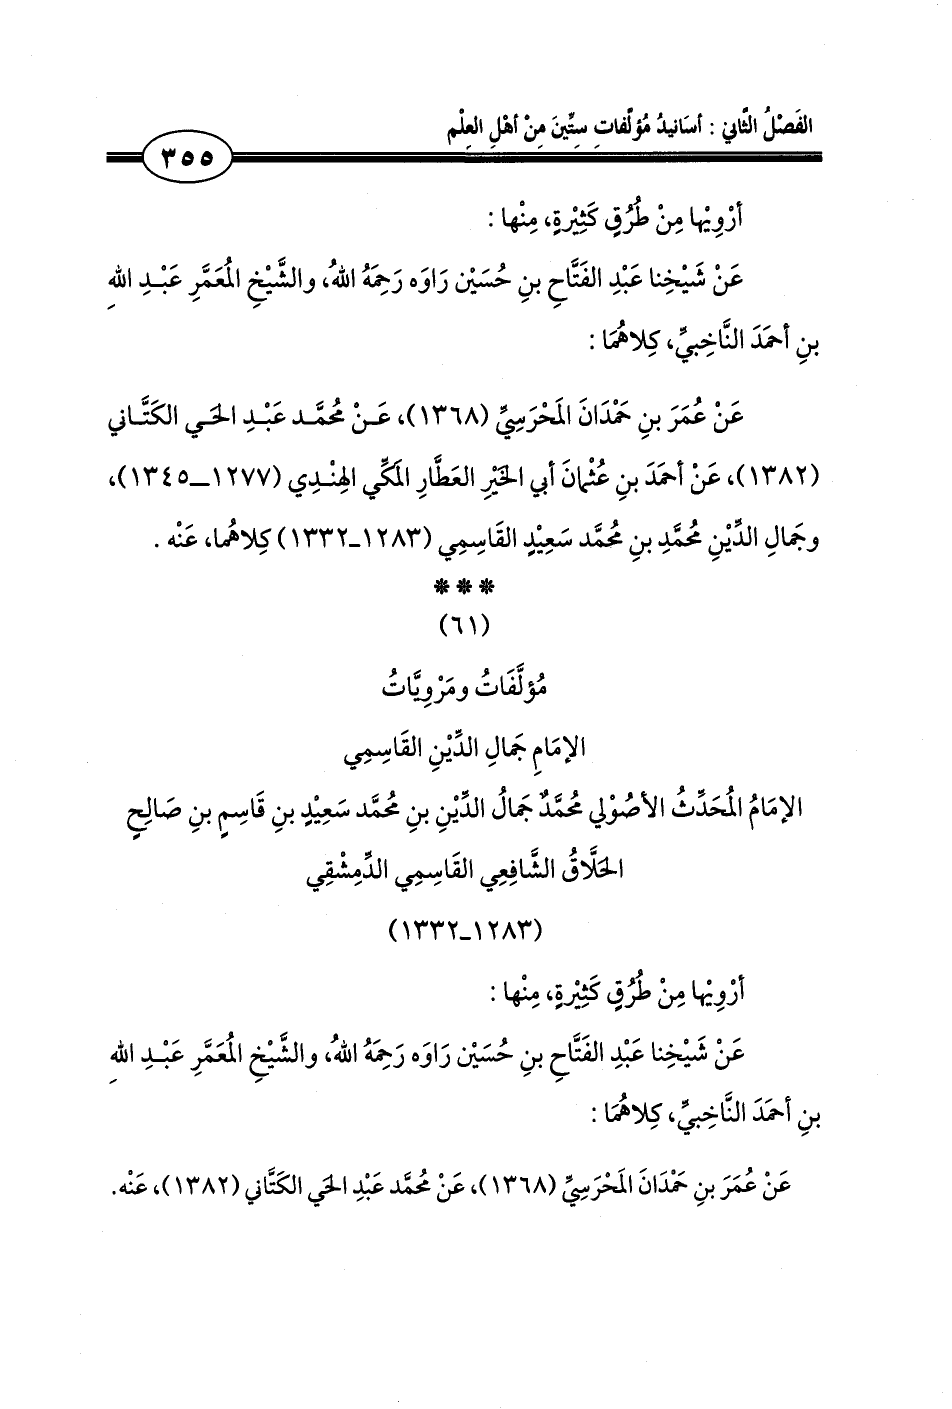 الفَصْلُ الثَّاني : أسَانيدُ مُؤلَّفاتِ ستِّينَ مِنْ أهْلِ العِلْم
٣٥٥
أرْوِيْها مِنْ طُرُقٍ كَثِيْرةٍ، مِنْها :
عَنْ شَيْخِنا عَبْدِ الفَتَّاحِ بنِ حُسَيْن رَاوَه رَحِمَهُ اللهُ، والشَّيْخِ المُعَمَّرِ عَبْدِ اللهِ
بنِ أحمَدَ النَّاخِبيِّ، كِلاهُمَا :
عَنْ عُمَرَ بنِ حَمْدَانَ المَحْرَسِيِّ (١٣٦٨)، عَنْ مُحمَّد عَبْدِ الحَي الكَتَّاني
(١٣٨٢)، عَنْ أحمَدَ بنِ عُثْمانَ أبي الخَيْرِ العَطَّارِ المَكِّي الهِنْدِي (١٢٧٧ــ١٣٤٥)،
وجَمالِ الدِّيْنِ مُحمَّدِ بنِ مُحمَّد سَعِيْدٍ القَاسِمِي (١٢٨٣ـ١٣٣٢) كِلاهُما، عَنْه .
***
(٦١)
مُؤلَّفَاتُ ومَرْوِيَّاتُ
الإمَامِ جَمَالِ الدِّيْنِ القَاسِمِي
الإمَامُ المُحَدِّثُ الأصُوْلي مُحمَّدٌ جَمَالُ الدِّيْنِ بنِ مُحمَّد سَعِيْدٍ بنِ قَاسِمِ بنِ صَالِحِ
الحَلَّاقُ الشَّافِعِي القَاسِمِي الدِّمِشْقِي
(١٢٨٣ـ١٣٣٢)
أرْوِيْها مِنْ طُرُقٍ كَثِيْرةٍ، مِنْها :
عَنْ شَيْخِنا عَبْدِ الفَتَّاحِ بنِ حُسَيْن رَاوَه رَحِمَهُ اللهُ، والشَّيْخِ المُعَمَّرِ عَبْدِ اللهِ
بنِ أحمَدَ النَّاخِبيِّ، كِلاهُمَا :
عَنْ عُمَرَ بنِ حَمْدَانَ المَحْرَسِيِّ (١٣٦٨)، عَنْ مُحمَّد عَبْدِ الحَي الكَتَّاني (١٣٨٢)، عَنْه.